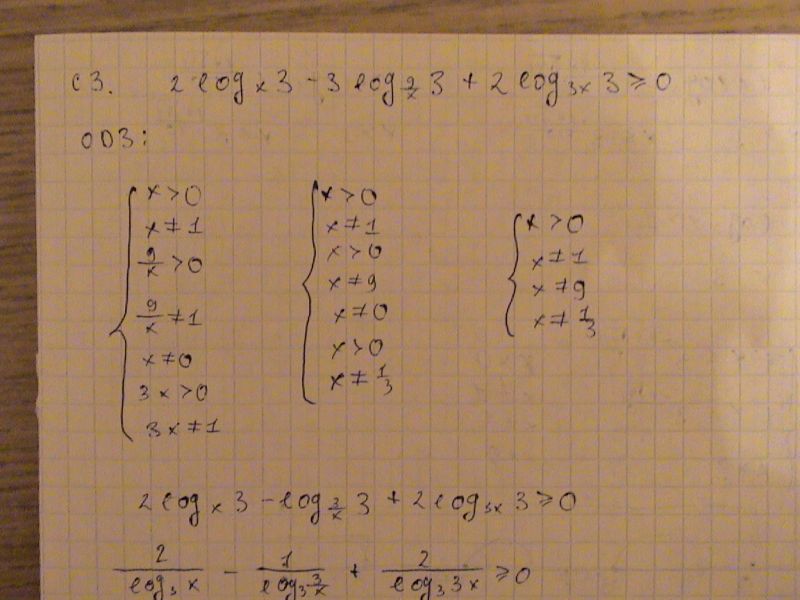 С3. 2 log_x 3 - 3 log_{9/x} 3 + 2 log_{3x} 3 ≥ 0
ОДЗ:
{ x > 0
x ≠ 1
9/x > 0
9/x ≠ 1
x ≠ 0
3x > 0
3x ≠ 1
{ x > 0
x ≠ 1
x > 0
x ≠ 9
x ≠ 0
x > 0
x ≠ 1/3
{ x > 0
x ≠ 1
x ≠ 9
x ≠ 1/3
2 log_x 3 - log_{3/x} 3 + 2 log_{3x} 3 ≥ 0
2/(log_3 x) - 1/(log_3 3/x) + 2/(log_3 3x) ≥ 0